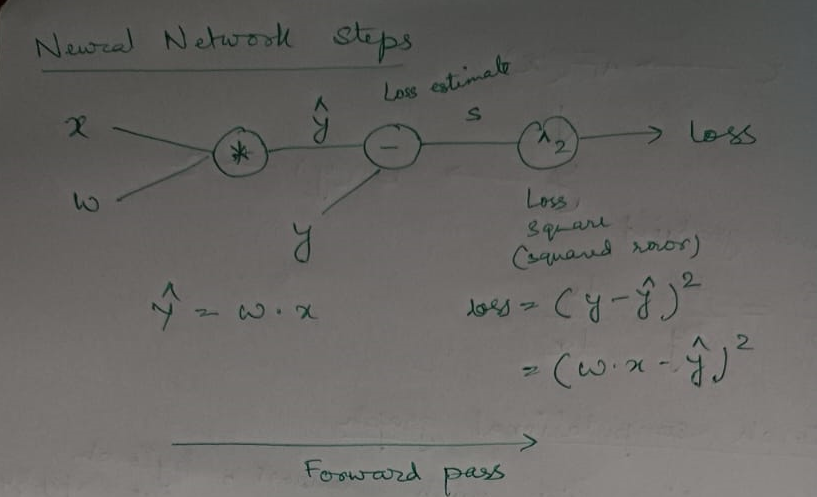 Neural Network Steps
Loss estimate
x
ŷ
s
*
-
^2
Loss
w
y
Loss
square
(squared error)
ŷ = w . x
loss = (y - ŷ)²
= (w.x - ŷ)²
Forward pass